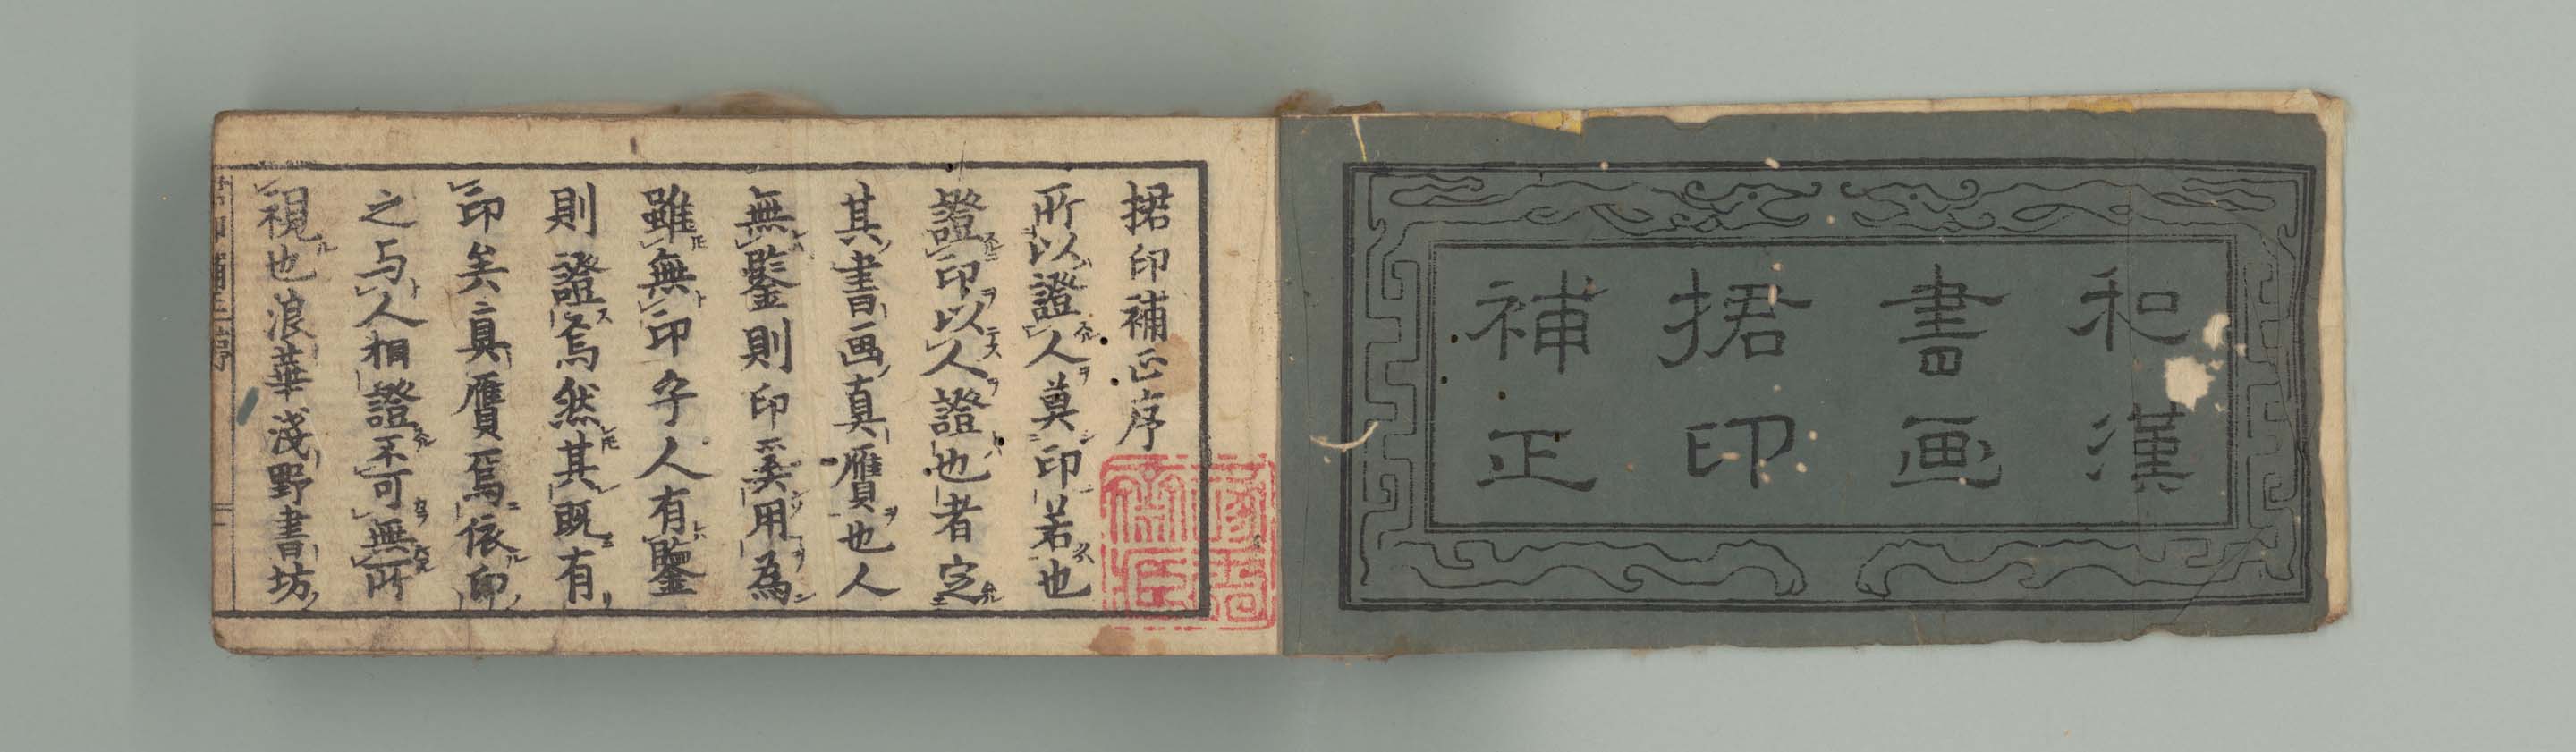 和漢
書画
捃印
補正
捃印補正序
所以證人莫印若也
證印以人證也者定
其書画真贋也人
無鑒則印奚用為
雖無印乎人有鑒
則證焉然其既有
印矣真贋焉依印
之与人相證不可無所
視也浪華淺野書坊